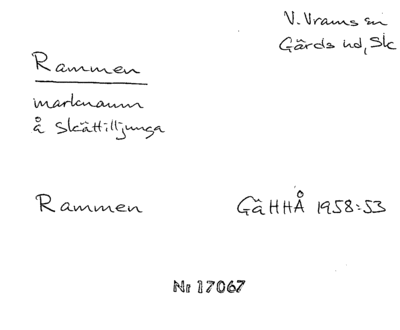 V. Vrams sn
Gärds hd, Sk
Rammen
marknamn
å Skättilljunga
Rammen GäHHÅ 1958:53
Nr 17067